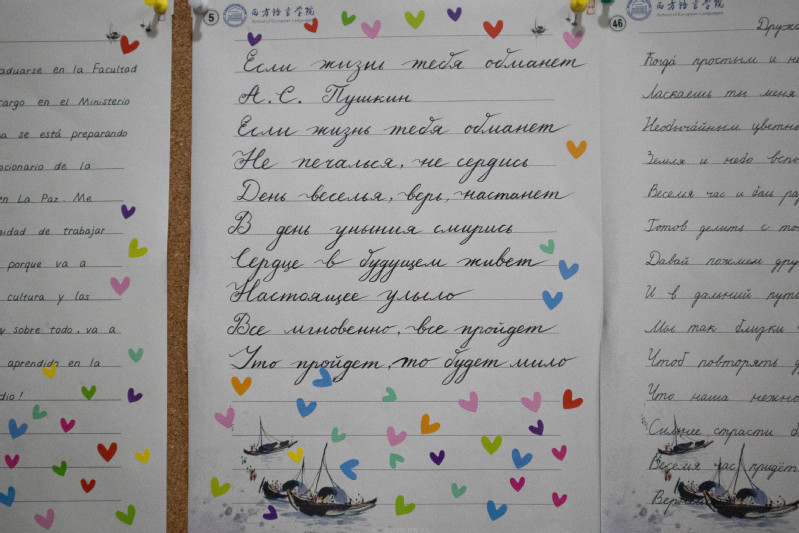 aduarse en la Facultad
cargo en el Ministerio
a se está preparando
cionario de la
en La Paz. Me
nidad de trabajar
porque va a
cultura y las
y sobre todo, va a
aprendido en la
dio!
5
西方语言学院
School of European Languages
Если жизнь тебя обманет
А.С. Пушкин
Если жизнь тебя обманет
Не печалься, не сердись
День веселья, верь, настанет
В день уныния смирись
Сердце в будущем живет
Настоящее улыло
Все мгновенно, все пройдет
Что пройдет, то будет мило
46
西方语言学院
School of European Languages
Друж
Когда́ простым и не
Ласкаешь ты меня
Необыча́йным цветны
Земля и небо вспы
Веселя час и
Готов делить с то
Давай пожмем дру
И в дальний путь
Мы так близки
Чтоб повторять
Что наша нежно
Сильнее страсти
Веселя час придёт